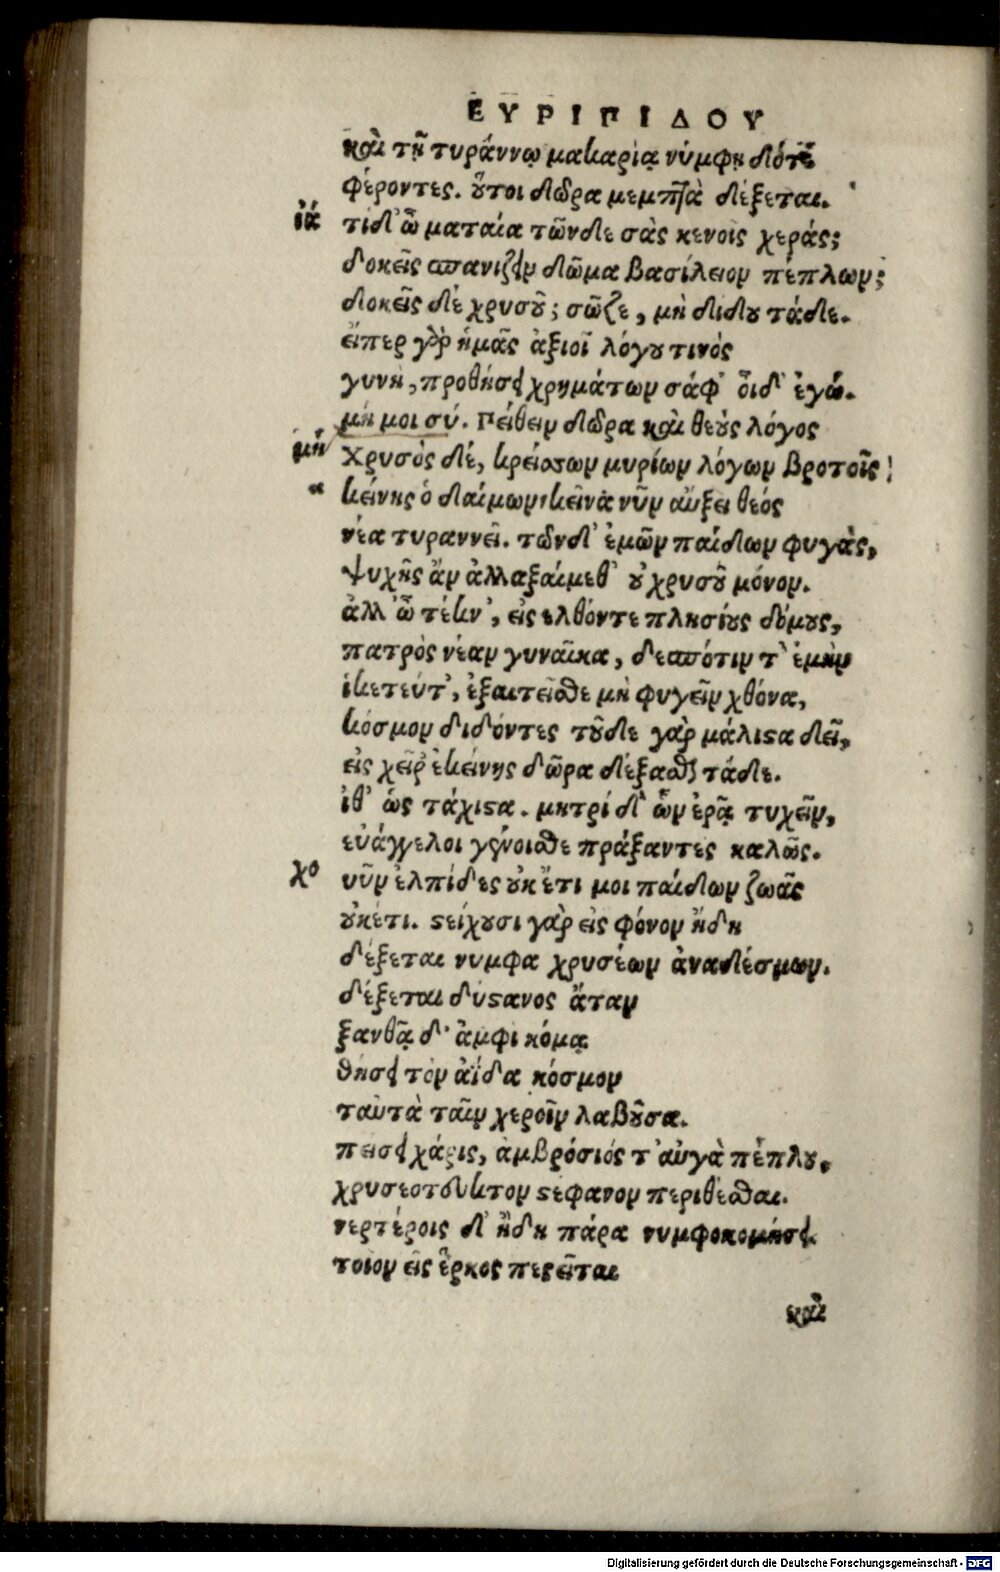 ΕΥΡΙΠΙΔΟΥ
καὶ τῇ τυράννῳ μακαρίᾳ νύμφῃ δότε
φέροντες. οὔτοι δῶρα μεμπτὰ δέξεται.
ἰά τί δ' ὦ ματαία τῶνδε σὰς κενοῖς χεράς;
δοκεῖς σπανίζειν δῶμα βασίλειον πέπλων;
δοκεῖς δὲ χρυσοῦ; σῶζε, μὴ δίδου τάδε.
εἴπερ γὰρ ἡμᾶς ἀξιοῖ λόγου τινὸς
γυνὴ, προθήσει χρημάτων σάφ' οἶδ' ἐγώ.
μή μοι σύ. πείθειν δῶρα καὶ θεοὺς λόγος
μή χρυσὸς δέ, κρείσσων μυρίων λόγων βροτοῖς!
κείνης ὁ δαίμων, κεῖνα νῦν αὔξει θεός
νέα τυραννεῖ. τῶν δ' ἐμῶν παίδων φυγὰς,
ψυχῆς ἂν ἀλλαξαίμεθ' οὐ χρυσοῦ μόνον.
ἀλλ' ὦ τέκν', εἰς ελθόντε πλησίους δόμους,
πατρὸς νέαν γυναῖκα, δεσπότιν τ' ἐμὴν
ἱκετεύτ', ἐξαιτεῖσθε μὴ φυγεῖν χθόνα,
κόσμον διδόντες τοῦδε γὰρ μάλιστα δεῖ,
εἰς χεῖρ' ἐκείνης δῶρα δέξασθαι τάδε.
ἴθ' ὡς τάχιστα. μητρὶ δ' ὧν ἐρᾷ τυχεῖν,
εὐάγγελοι γένοισθε πράξαντες καλῶς.
χο νῦν ἐλπίδες οὐκ ἔτι μοι παίδων ζωᾶς
οὐκέτι. στείχουσι γὰρ εἰς φόνον ἤδη
δέξεται νυμφα χρυσέων ἀναδέσμων.
δέξεται δύστανος ἄταν
ξανθᾷ δ' ἀμφὶ κόμᾳ
θήσει τὸν ἀΐδα κόσμον
ταὐτὰ ταῖν χεροῖν λαβοῦσα.
πείσει χάρις, ἀμβρόσιός τ' αὐγὰ πέπλου,
χρυσεοτευκτον στεφανον περιθέσθαι.
νερτέροις δ' ἤδη πάρα νυμφοκομήσει.
τοῖον εἰς ἕρκος πεσεῖται
καὶ
Digitalisierung gefördert durch die Deutsche Forschungsgemeinschaft - DFG